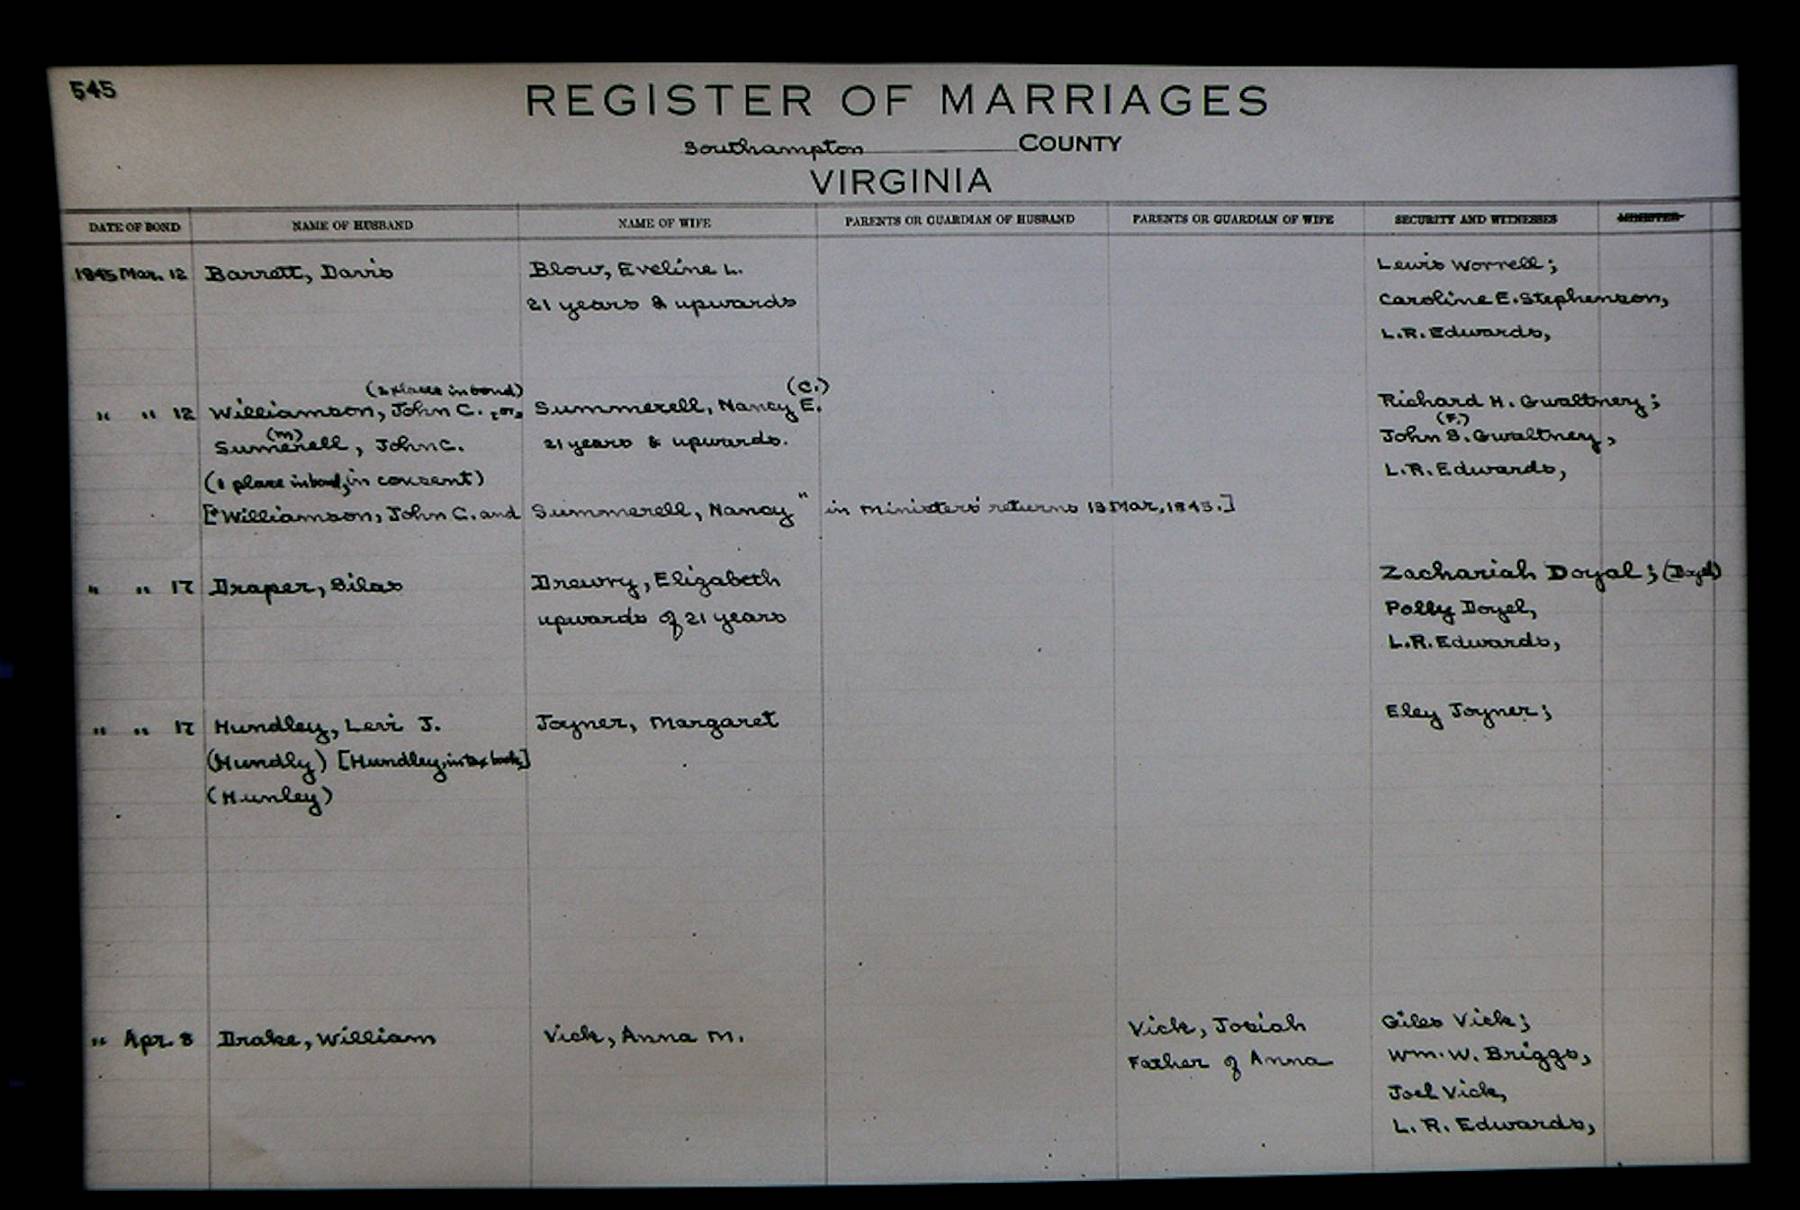 545
REGISTER OF MARRIAGES
Southampton COUNTY
VIRGINIA
DATE OF BOND NAME OF HUSBAND NAME OF WIFE PARENTS OR GUARDIAN OF HUSBAND PARENTS OR GUARDIAN OF WIFE SECURITY AND WITNESSES MINISTER
1845 Mar. 12 Barrett, Davis Blow, Eveline L. Lewis Worrell;
21 years & upwards Caroline E. Stephenson,
L.R. Edwards,
(2 places in bond) (C.)
" " 12 Williamson, John C. , or, Summerell, Nancy E. Richard H. Gwaltney;
(m) (F.)
Sumerell, John C. 21 years & upwards. John S. Gwaltney,
(1 place in bond, in consent) L.R. Edwards,
["Williamson, John C. and Summerell, Nancy" in ministers' returns 13 Mar, 1845.]
" " 17 Draper, Silas Drewry, Elizabeth Zachariah Doyal; (Doyel)
upwards of 21 years Polly Doyel,
L.R. Edwards,
" " 17 Hundley, Levi J. Joyner, Margaret Eley Joyner;
(Hundly) [Hundley, in tax book]
(Hunley)
" Apr. 8 Drake, William Vick, Anna M. Vick, Josiah Giles Vick;
Father of Anna Wm. W. Briggs,
Joel Vick,
L. R. Edwards,